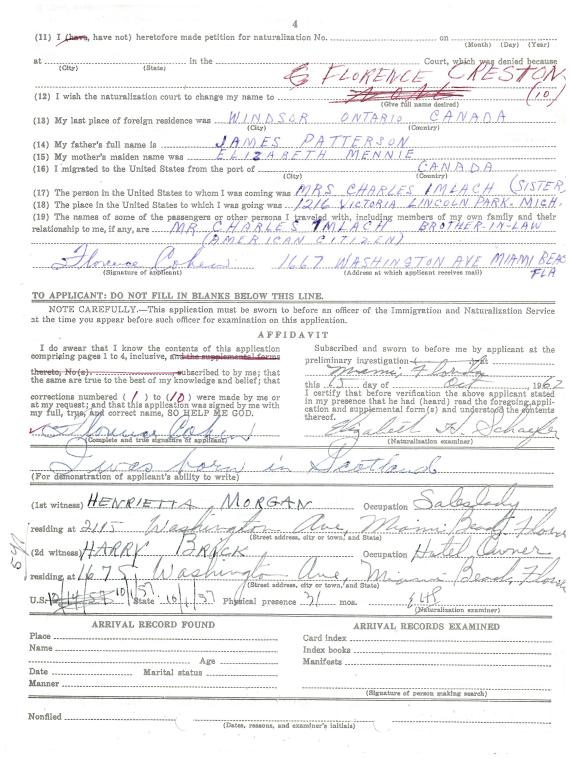 4
(11) I (have, have not) heretofore made petition for naturalization No. on
(Month) (Day) (Year)
at in the Court, which was denied because
(City) (State)
FLORENCE CRESTON
(12) I wish the naturalization court to change my name to (10)
(Give full name desired)
(13) My last place of foreign residence was WINDSOR ONTARIO CANADA
(City) (Country)
(14) My father's full name is JAMES PATTERSON
(15) My mother's maiden name was ELIZABETH MENNIE
(16) I migrated to the United States from the port of CANADA
(City) (Country)
(17) The person in the United States to whom I was coming was MRS CHARLES IMLACH (SISTER)
(18) The place in the United States to which I was going was 1216 VICTORIA LINCOLN PARK. MICH.
(19) The names of some of the passengers or other persons I traveled with, including members of my own family and their
relationship to me, if any, are MR CHARLES IMLACH BROTHER-IN-LAW
(AMERICAN CITIZEN)
Florence Cohen 1667 WASHINGTON AVE MIAMI BEAC
FLA
(Signature of applicant) (Address at which applicant receives mail)
TO APPLICANT: DO NOT FILL IN BLANKS BELOW THIS LINE.
NOTE CAREFULLY.—This application must be sworn to before an officer of the Immigration and Naturalization Service
at the time you appear before such officer for examination on this application.
AFFIDAVIT
I do swear that I know the contents of this application
comprising pages 1 to 4, inclusive, and the supplemental forms
thereto, No(s). subscribed to by me; that
the same are true to the best of my knowledge and belief; that
corrections numbered (1) to (10) were made by me or
at my request; and that this application was signed by me with
my full, true, and correct name, SO HELP ME GOD.
Florence Cohen
(Complete and true signature of applicant)
Subscribed and sworn to before me by applicant at the
preliminary investigation ( ) at
Miami Florida
this 15 day of Oct 1962
I certify that before verification the above applicant stated
in my presence that he had (heard) read the foregoing appli-
cation and supplemental form(s) and understood the contents
thereof.
Elizabeth H. Schaefer
(Naturalization examiner)
I was born in Scotland
(For demonstration of applicant's ability to write)
(1st witness) HENRIETTA MORGAN Occupation Saleslady
residing at 2115 Washington Ave, Miami Beach, Florida
(Street address, city or town, and State)
(2d witness) HARRY BRICK Occupation Hotel Owner
residing at 1675 Washington Ave, Miami Beach, Florida
(Street address, city or town, and State)
U.S. 10/1/57 State 10/1/57 Physical presence 31 mos.
(Naturalization examiner)
ARRIVAL RECORD FOUND
Place
Name
Age
Date Marital status
Manner
ARRIVAL RECORDS EXAMINED
Card index
Index books
Manifests
(Signature of person making search)
Nonfiled
(Dates, reasons, and examiner's initials)